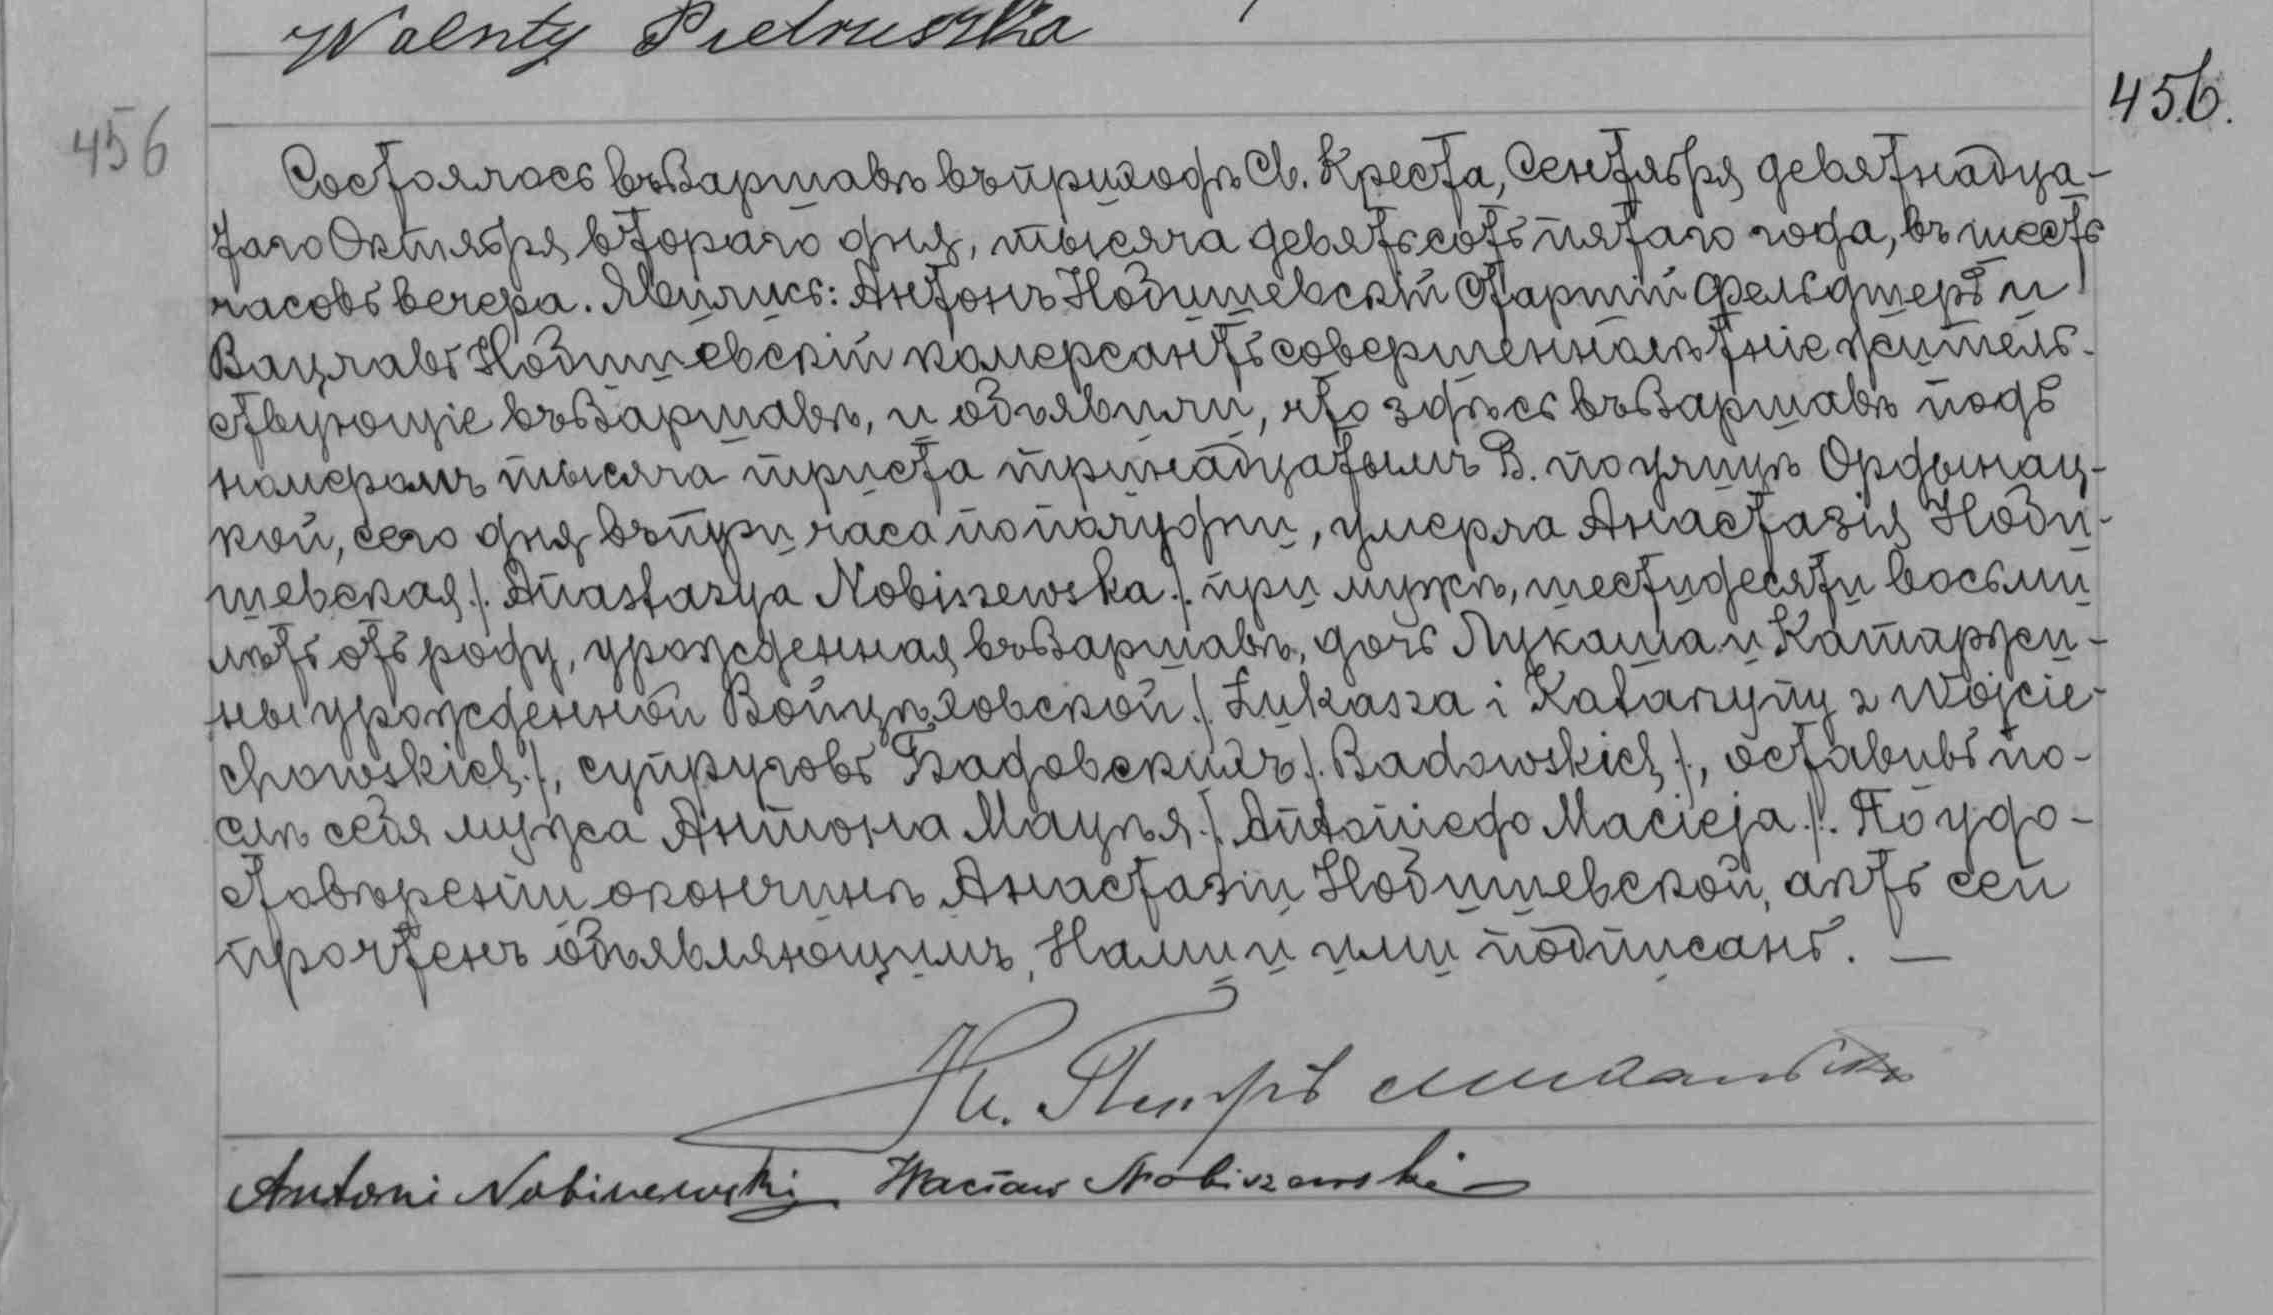 Walenty Pietruszka
456
456.
Состоялось въ Варшавѣ въ приходѣ Св. Креста, Сентября девятнадца-
таго Октября втораго дня, тысяча девятьсотъ пятаго года, въ шесть
часовъ вечера. Явились: Антонъ Нобишевскій старшій фельдшеръ и
Вацлавъ Нобишевскій комерсантъ совершеннолѣтніе житель-
ствующіе въ Варшавѣ, и объявили, что здѣсь въ Варшавѣ подъ
номеромъ тысяча триста тринадцатымъ В. по улицѣ Ордынац-
кой, сего дня въ три часа пополудни, умерла АнастазіяНоби-
шевская /. Anastazya Nobiszewska ./ при мужѣ, шестидесяти восьми
лѣтъ отъ роду, урожденная въ Варшавѣ, дочь Лукаша и Катаржи-
ны урожденной Войцѣховской /. Łukasza i Katarzyny z Wojcie-
chowskich ./, супруговъ Бадовскихъ /. Badowskich ./, оставивъ по-
слѣ себя мужа Антона Мацѣя /. Antoniego Macieja ./. По удо-
стовѣреніи окончинѣ Анастазіи Нобишевской, актъ сей
прочтенъ объявляющимъ, Нами и ими подписанъ. —
Кс. Петръ
Antoni Nobiszewski Wacław Nobiszewski